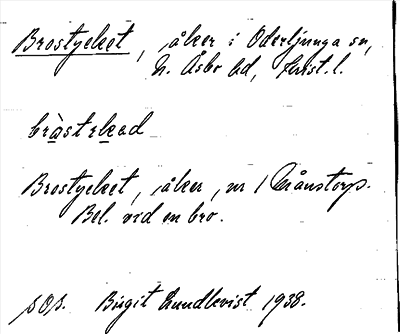 Brostycket, åker i Oderljunga sn,
N. Åsbo hd, Krist. l.
bròstykad
Brostycket, åker, nr 1 Månstorp.
Bel. vid en bro.
Birgit Lundkvist 1938.